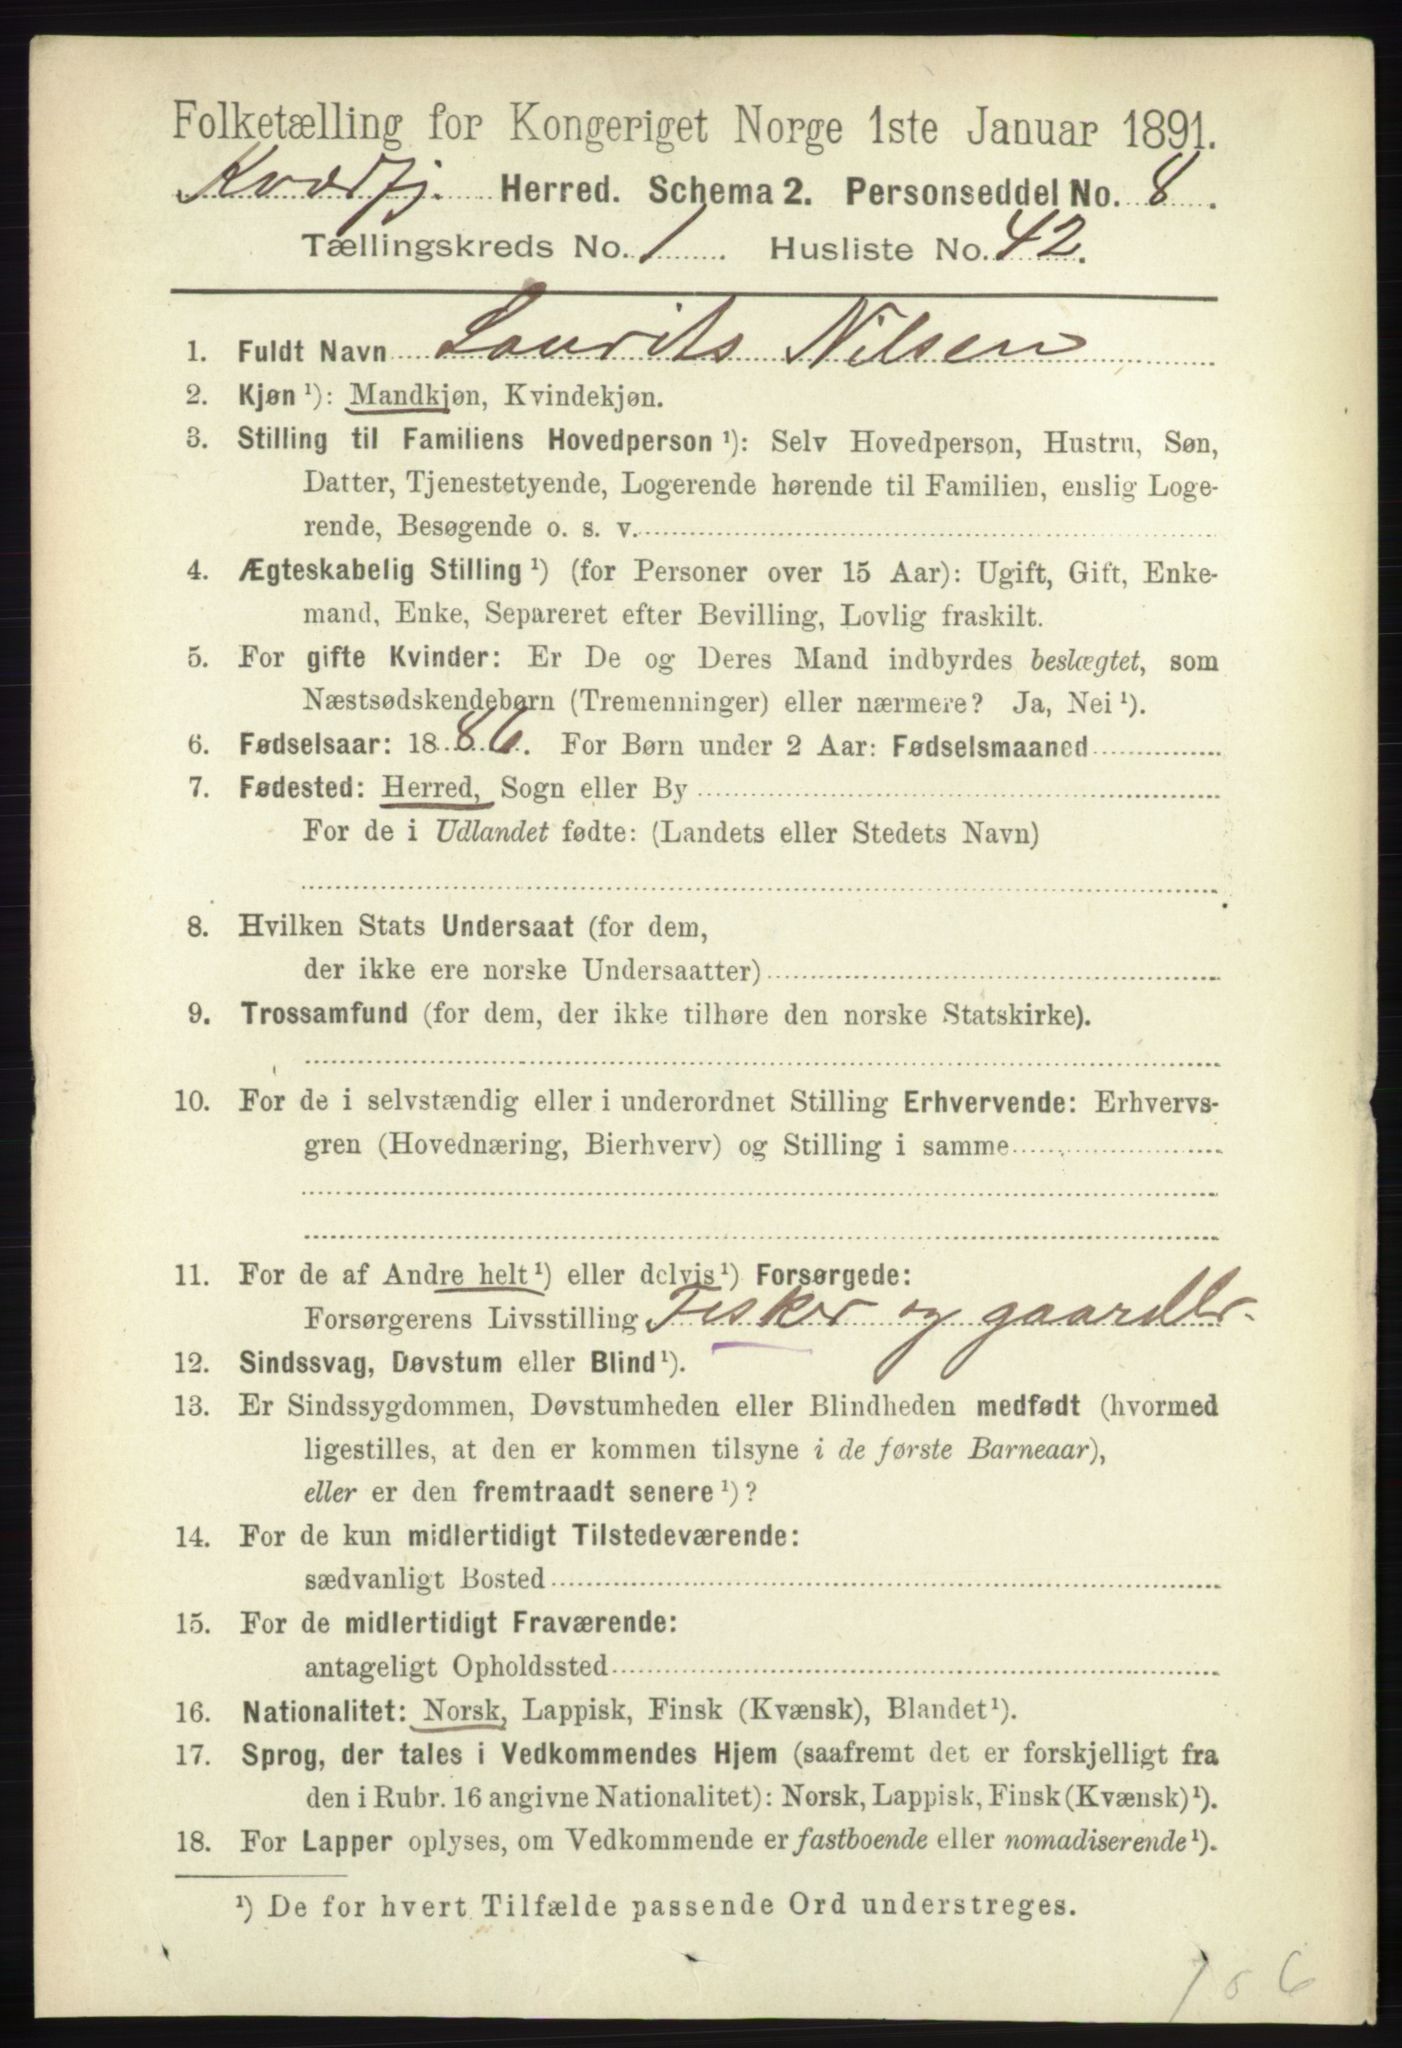 Folketælling for Kongeriget Norge 1ste Januar 1891.
Kvædfj. Herred. Schema 2. Personseddel No. 8.
Tællingskreds No. 1. Husliste No. 42.
1. Fuldt Navn Laurits Nilsen
2. Kjøn ¹): Mandkjøn, Kvindekjøn.
3. Stilling til Familiens Hovedperson ¹): Selv Hovedperson, Hustru, Søn,
Datter, Tjenestetyende, Logerende hørende til Familien, enslig Loge-
rende, Besøgende o. s. v.
4. Ægteskabelig Stilling ¹) (for Personer over 15 Aar): Ugift, Gift, Enke-
mand, Enke, Separeret efter Bevilling, Lovlig fraskilt.
5. For gifte Kvinder: Er De og Deres Mand indbyrdes beslægtet, som
Næstsødskendebørn (Tremenninger) eller nærmere? Ja, Nei ¹).
6. Fødselsaar: 1886. For Børn under 2 Aar: Fødselsmaaned
7. Fødested: Herred, Sogn eller By
For de i Udlandet fødte: (Landets eller Stedets Navn)
8. Hvilken Stats Undersaat (for dem,
der ikke ere norske Undersaatter)
9. Trossamfund (for dem, der ikke tilhøre den norske Statskirke).
10. For de i selvstændig eller i underordnet Stilling Erhvervende: Erhvervs-
gren (Hovednæring, Bierhverv) og Stilling i samme
11. For de af Andre helt ¹) eller delvis ¹) Forsørgede:
Forsørgerens Livsstilling Fisker og gaardbr.
12. Sindssvag, Døvstum eller Blind ¹).
13. Er Sindssygdommen, Døvstumheden eller Blindheden medfødt (hvormed
ligestilles, at den er kommen tilsyne i de første Barneaar),
eller er den fremtraadt senere ¹)?
14. For de kun midlertidigt Tilstedeværende:
sædvanligt Bosted
15. For de midlertidigt Fraværende:
antageligt Opholdssted
16. Nationalitet: Norsk, Lappisk, Finsk (Kvænsk), Blandet ¹).
17. Sprog, der tales i Vedkommendes Hjem (saafremt det er forskjelligt fra
den i Rubr. 16 angivne Nationalitet): Norsk, Lappisk, Finsk (Kvænsk) ¹).
18. For Lapper oplyses, om Vedkommende er fastboende eller nomadiserende ¹).
¹) De for hvert Tilfælde passende Ord understreges.